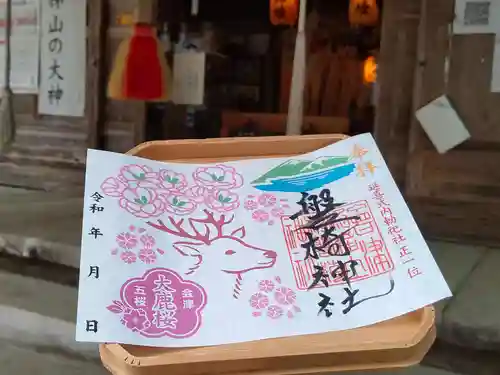 山の大神
奉拝
延喜式内勅社正一位
磐椅神社
令和 年 月 日
会津
五桜
大鹿桜